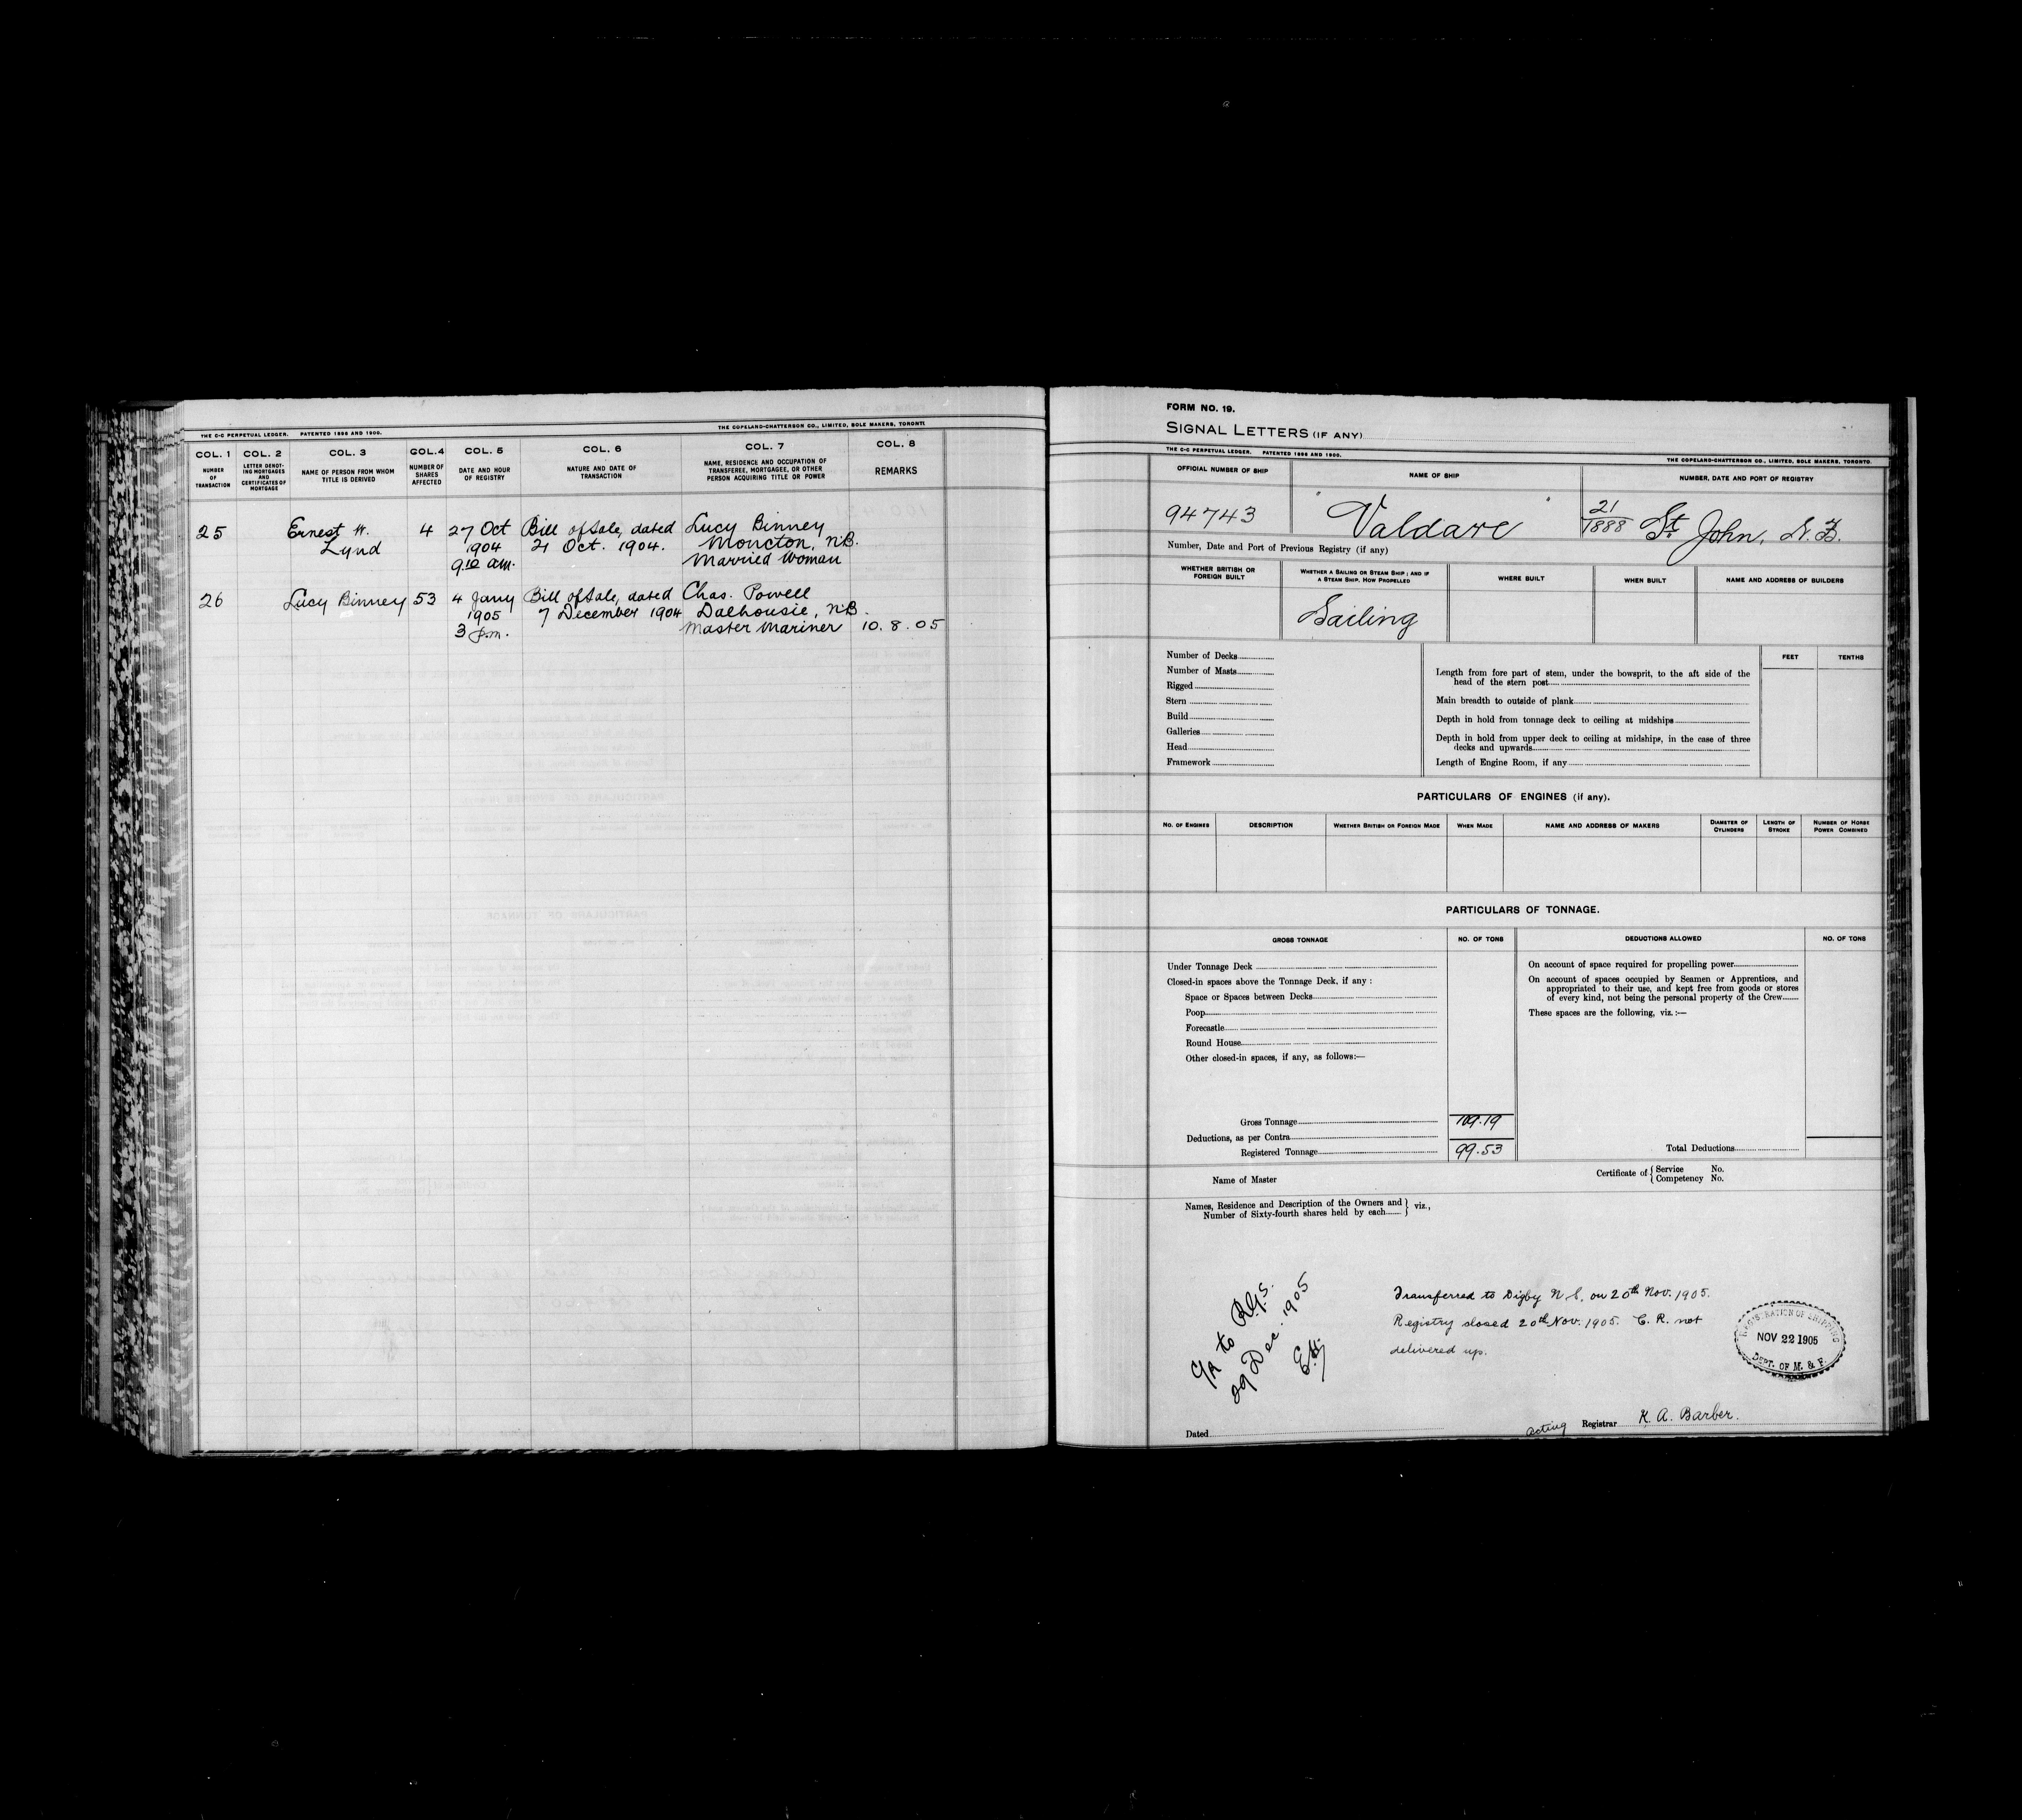 THE C-C PERPETUAL LEDGER. PATENTED 1896 AND 1900. THE COPELAND-CHATTERSON CO., LIMITED, SOLE MAKERS, TORONTO
COL. 1 COL. 2 COL. 3 COL. 4 COL. 5 COL. 6 COL. 7 COL. 8
NUMBER OF TRANSACTION
LETTER DENOTING MORTGAGES AND CERTIFICATES OF MORTGAGE
NAME OF PERSON FROM WHOM TITLE IS DERIVED
NUMBER OF SHARES AFFECTED
DATE AND HOUR OF REGISTRY
NATURE AND DATE OF TRANSACTION
NAME, RESIDENCE AND OCCUPATION OF TRANSFEREE, MORTGAGEE, OR OTHER PERSON ACQUIRING TITLE OR POWER
REMARKS
25 Ernest H. 4 27 Oct Bill of Sale, dated Lucy Binney
Lynd 1904 21 Oct. 1904. Moncton, N.B.
9.10 am. Married Woman
26 Lucy Binney 53 4 Jany Bill of Sale, dated Chas. Powell
1905 7 December 1904 Dalhousie, N.B.
3 p.m. Master Mariner 10.8.05
FORM NO. 19.
SIGNAL LETTERS (IF ANY)
THE C-C PERPETUAL LEDGER. PATENTED 1896 AND 1900. THE COPELAND-CHATTERSON CO., LIMITED, SOLE MAKERS, TORONTO.
OFFICIAL NUMBER OF SHIP NAME OF SHIP NUMBER, DATE AND PORT OF REGISTRY
94743 "Valdare" 21/1888 St. John, N.B.
Number, Date and Port of Previous Registry (if any)
WHETHER BRITISH OR FOREIGN BUILT
WHETHER A SAILING OR STEAM SHIP; AND IF A STEAM SHIP, HOW PROPELLED
WHERE BUILT WHEN BUILT NAME AND ADDRESS OF BUILDERS
Sailing
Number of Decks
Number of Masts
Rigged
Stern
Build
Galleries
Head
Framework
FEET TENTHS
Length from fore part of stem, under the bowsprit, to the aft side of the
head of the stern post
Main breadth to outside of plank
Depth in hold from tonnage deck to ceiling at midships
Depth in hold from upper deck to ceiling at midships, in the case of three
decks and upwards
Length of Engine Room, if any
PARTICULARS OF ENGINES (if any).
NO. OF ENGINES DESCRIPTION WHETHER BRITISH OR FOREIGN MADE WHEN MADE NAME AND ADDRESS OF MAKERS DIAMETER OF CYLINDERS LENGTH OF STROKE NUMBER OF HORSE POWER COMBINED
PARTICULARS OF TONNAGE.
GROSS TONNAGE NO. OF TONS DEDUCTIONS ALLOWED NO. OF TONS
Under Tonnage Deck
Closed-in spaces above the Tonnage Deck, if any :
Space or Spaces between Decks
Poop
Forecastle
Round House
Other closed-in spaces, if any, as follows:—
On account of space required for propelling power
On account of spaces occupied by Seamen or Apprentices, and
appropriated to their use, and kept free from goods or stores
of every kind, not being the personal property of the Crew
These spaces are the following, viz.:—
Gross Tonnage 109.19
Deductions, as per Contra
Registered Tonnage 99.53
Total Deductions
Name of Master
Certificate of { Service No.
{ Competency No.
Names, Residence and Description of the Owners and } viz.,
Number of Sixty-fourth shares held by each }
C/A to R.G.S.
29 Dec. 1905
Transferred to Digby N.S. on 20th Nov. 1905.
Registry closed 20th Nov. 1905. C. R. not
delivered up.
REGISTRATION OF SHIPPING
NOV 22 1905
DEPT. OF M. & F.
Dated
acting Registrar K. A. Barber.